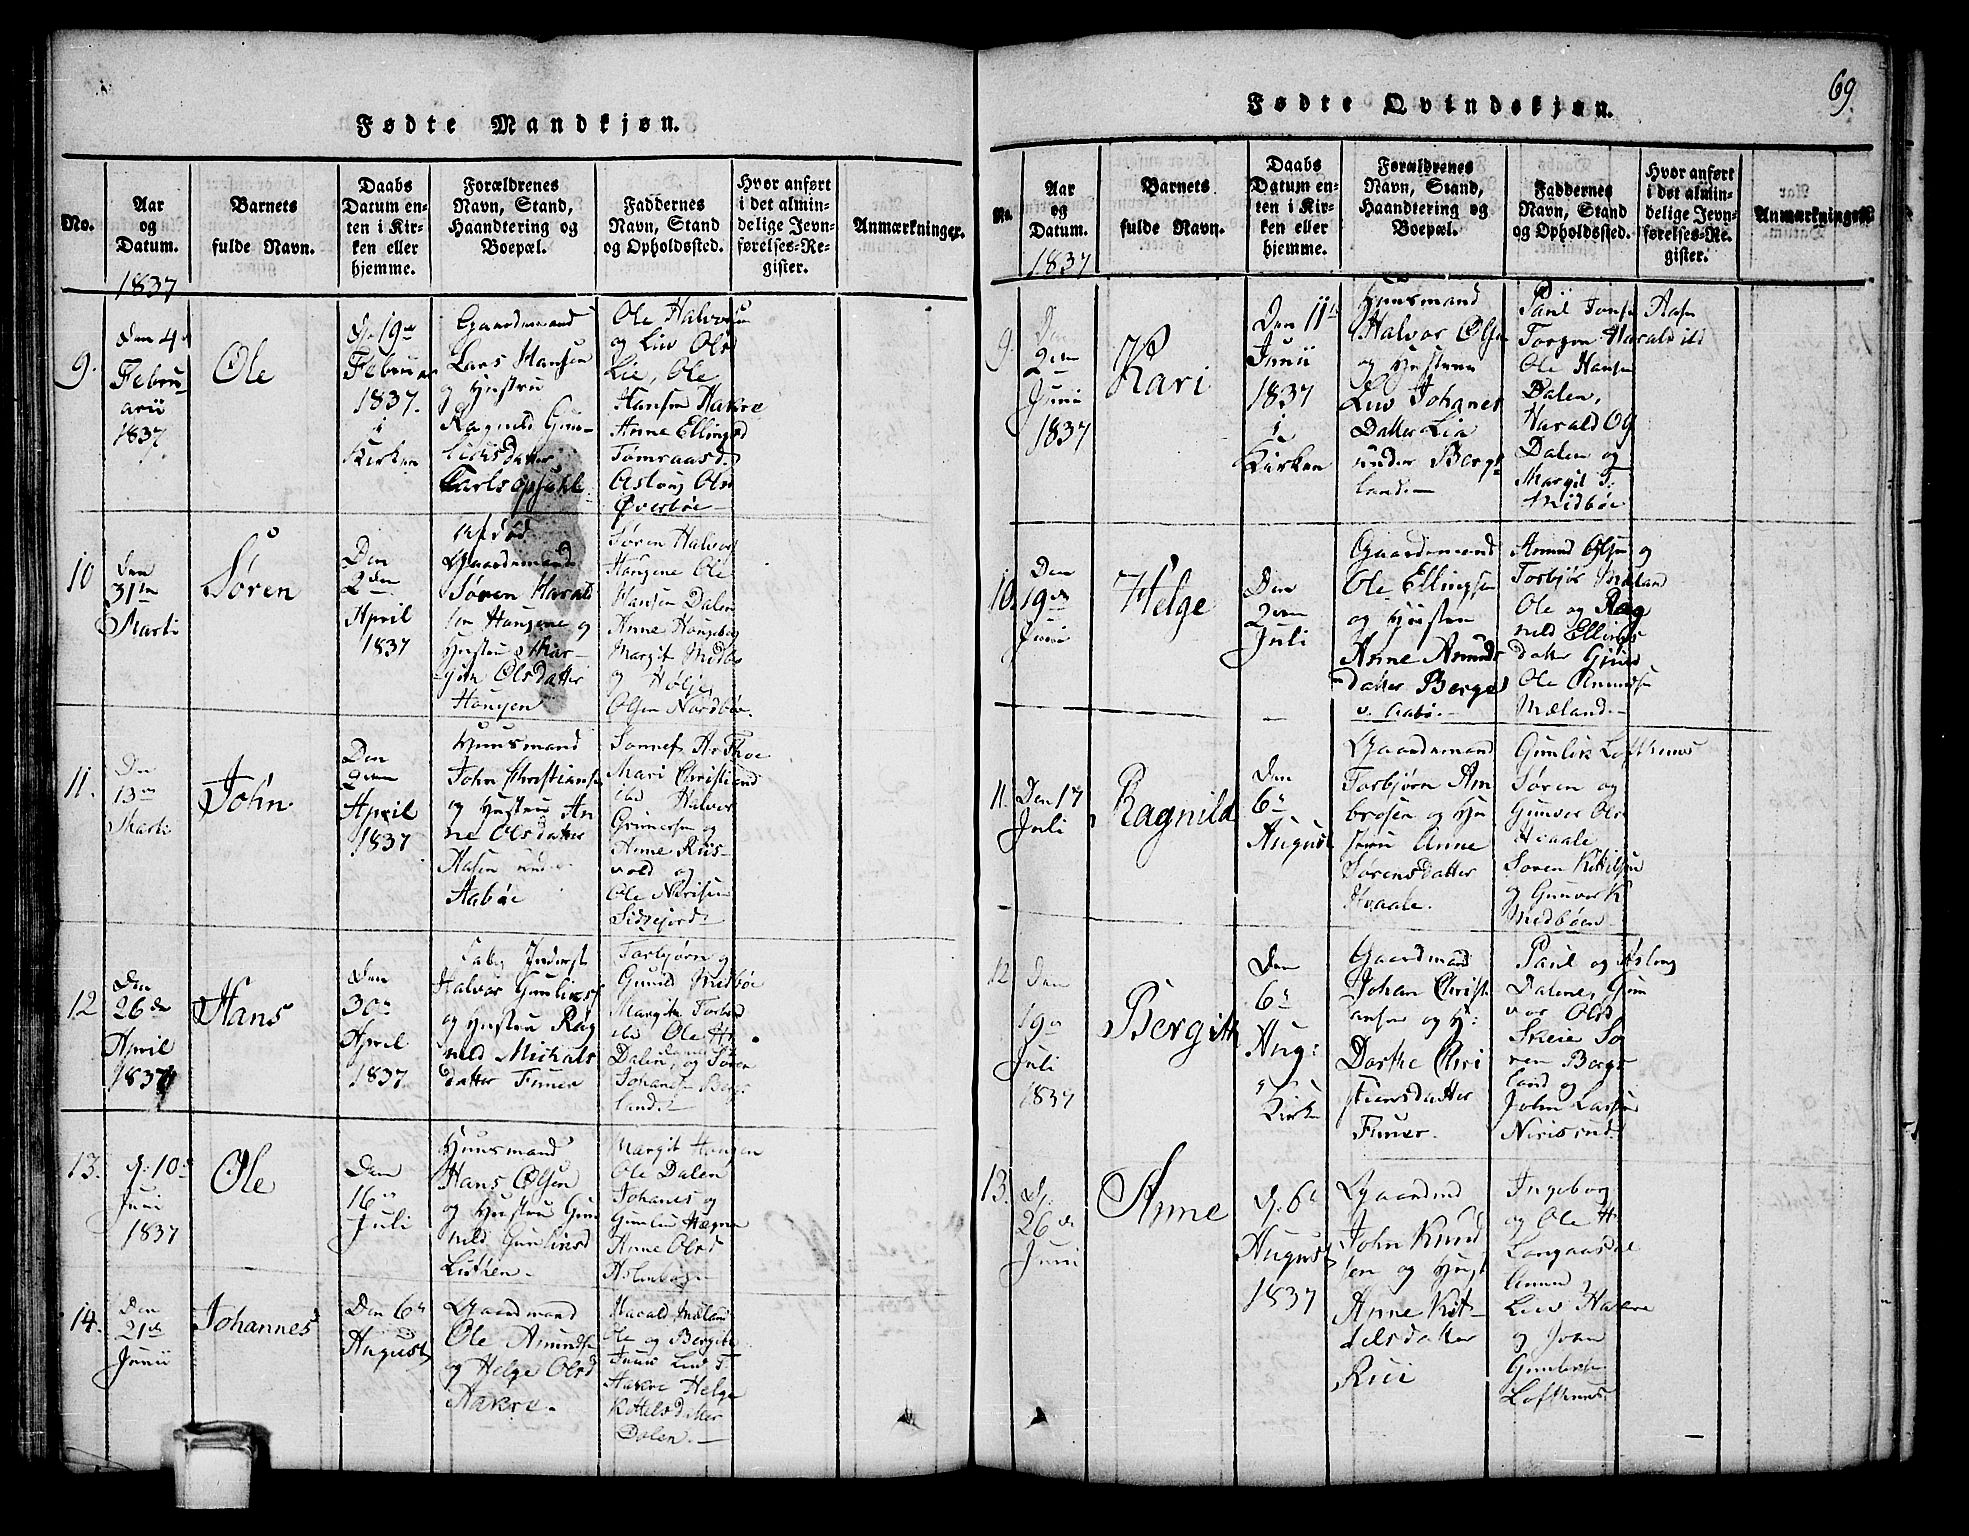 Fødte Mandkjøn.
No.
Aar
og
Datum.
1837
Barnets
fulde Navn.
Daabs
Datum en-
ten i Kir-
ken eller
hjemme.
Forældrenes
Navn, Stand,
Haandtering og
Boepæl.
Faddernes
Navn, Stand
og Opholdssted.
Hvor anført
i det almin-
delige Jevn-
førelses-Re-
gister.
Anmærkninger.
9.
Den 4de
Febru
arii
1837.
Ole
D. 19de
Februar
1837.
i
Kirken
Gaardmand
Lars Hansen
og Hustru
Ragnild Gun-
leiksdatter
Ole Halvors
og Liv Olsd
Lie, Ole
Hansen Hakre
Anne Ellingsd
Tømraasd.
Asloug Olsd
Øverbøe
10
den
31te
Marti
Søren
Den
2den
April
1837
Afdød
Gaardemand
Søren Harald
sen Haugene og
Hustru Mar-
git Olsdatter
Haugen
Søren Halvors
Haugene Ole
Hansen Dalen
Anne Haugebag
Margit Midbø
og Hølje
Olsen Nordbøe.
11.
Den
13de
Marti
John
Den
2den
April
1837.
Huusmand
John Christians
og Hustru An
ne Olsdatter
Aasen under
Aabøe
Mari Christiansd
ibd Halvor
Grunersen og
Anne Riis-
vold og
Ole Nirisen
12
Den
26de
April
1837
Hans
Den
30te
April
1837
Halvor Gunleiks
og Hustru Rag
nild Michals
datter Finner
Torbjørn og
Gunild Midbøe
Margit Torbiø
ibd Ole H.
Dalen, og Søren
Johannesen Bergs
land.
13.
d. 10de
Juni
1837
Ole
Den
16de
Juli
Huusmand
Hans Olsen
og Hustru Gun
nild Gunleiksd
Margit Haugen
Ole Dalen
Johanes og
Gunleiv Hægna
Anne Olsd
14.
Den
21de
Junii
Johannes
Den 6te
August
Gaardmand
Ole Amundsen
og Helge Olsd
Hakre.
Harald Mæland
Ole og Bergit
Hakre Helge
Kittelsdatter
Dalen.
Fødte Qvindekjøn.
69.
No.
Aar
og
Datum.
1837
Barnets
fulde Navn.
Daabs
Datum en-
ten i Kir-
ken eller
hjemme.
Forældrenes
Navn, Stand,
Haandtering og
Boepæl.
Faddernes
Navn, Stand
og Opholdssted.
Hvor anført
i det almin-
delige Jevn-
førelses-Re-
gister.
Anmærkninger.
9.
Den
2den
Juni
1837
Kari
Den 11te
Junii
1837
i
Kirken
Huusmand
Halvor Olsen
og Hustru
Liv Johanes
Datter Lia
under Bergs
land.
Paul Jonsen Aasen
Torgon Harald ibd
Ole Hansen
Dalen,
Harald Og
Dalen og
Margit T.
Midbøe
10.
Den
19de
Juni
Helge
Den
2den
Juli
Gaardemand
Ole Ellingsen
og Hustru
Anne Amunds
datter Berge
v. Aabø.
Amund Olsen og
Torbjør Mæland
Ole og Rag
nild Ellings
datter
Ole Amundsen
Mæland.
11.
Den 17
Juli
Ragnild
Den
6te
August
Gaardemand
Torbjørn Am
brosen og Hu
stru Anne
Sørensdatter
Hvaale.
Gunleik Lofthuus
Søren og
Gunvor Olsd
Hvaale
Søren Kittilsen
og Gunvor K
Midbøen
12
Den
19de
Juli
1837
Bergith
Den
6te
Aug:
i
Kirken
Gaardmand
Johan Christi
ansen og H:
Dorthe Chri
stiansdatter
Finner.
Paul og Asloug
Dalene, Gun
vor Olsd
Skeie Sø
ren Bergs
land og
John Larsen
13.
D.
26de
Juni
Anne
d. 6te
August
1837
Gaardmd
John Knud
sen og Hust
Anne Kit-
telsdatter
Rui
Ingeborg
og Ole H.
Langaasdal
Liv Hakre
og Joen
Gunleiksen
Lofthuus